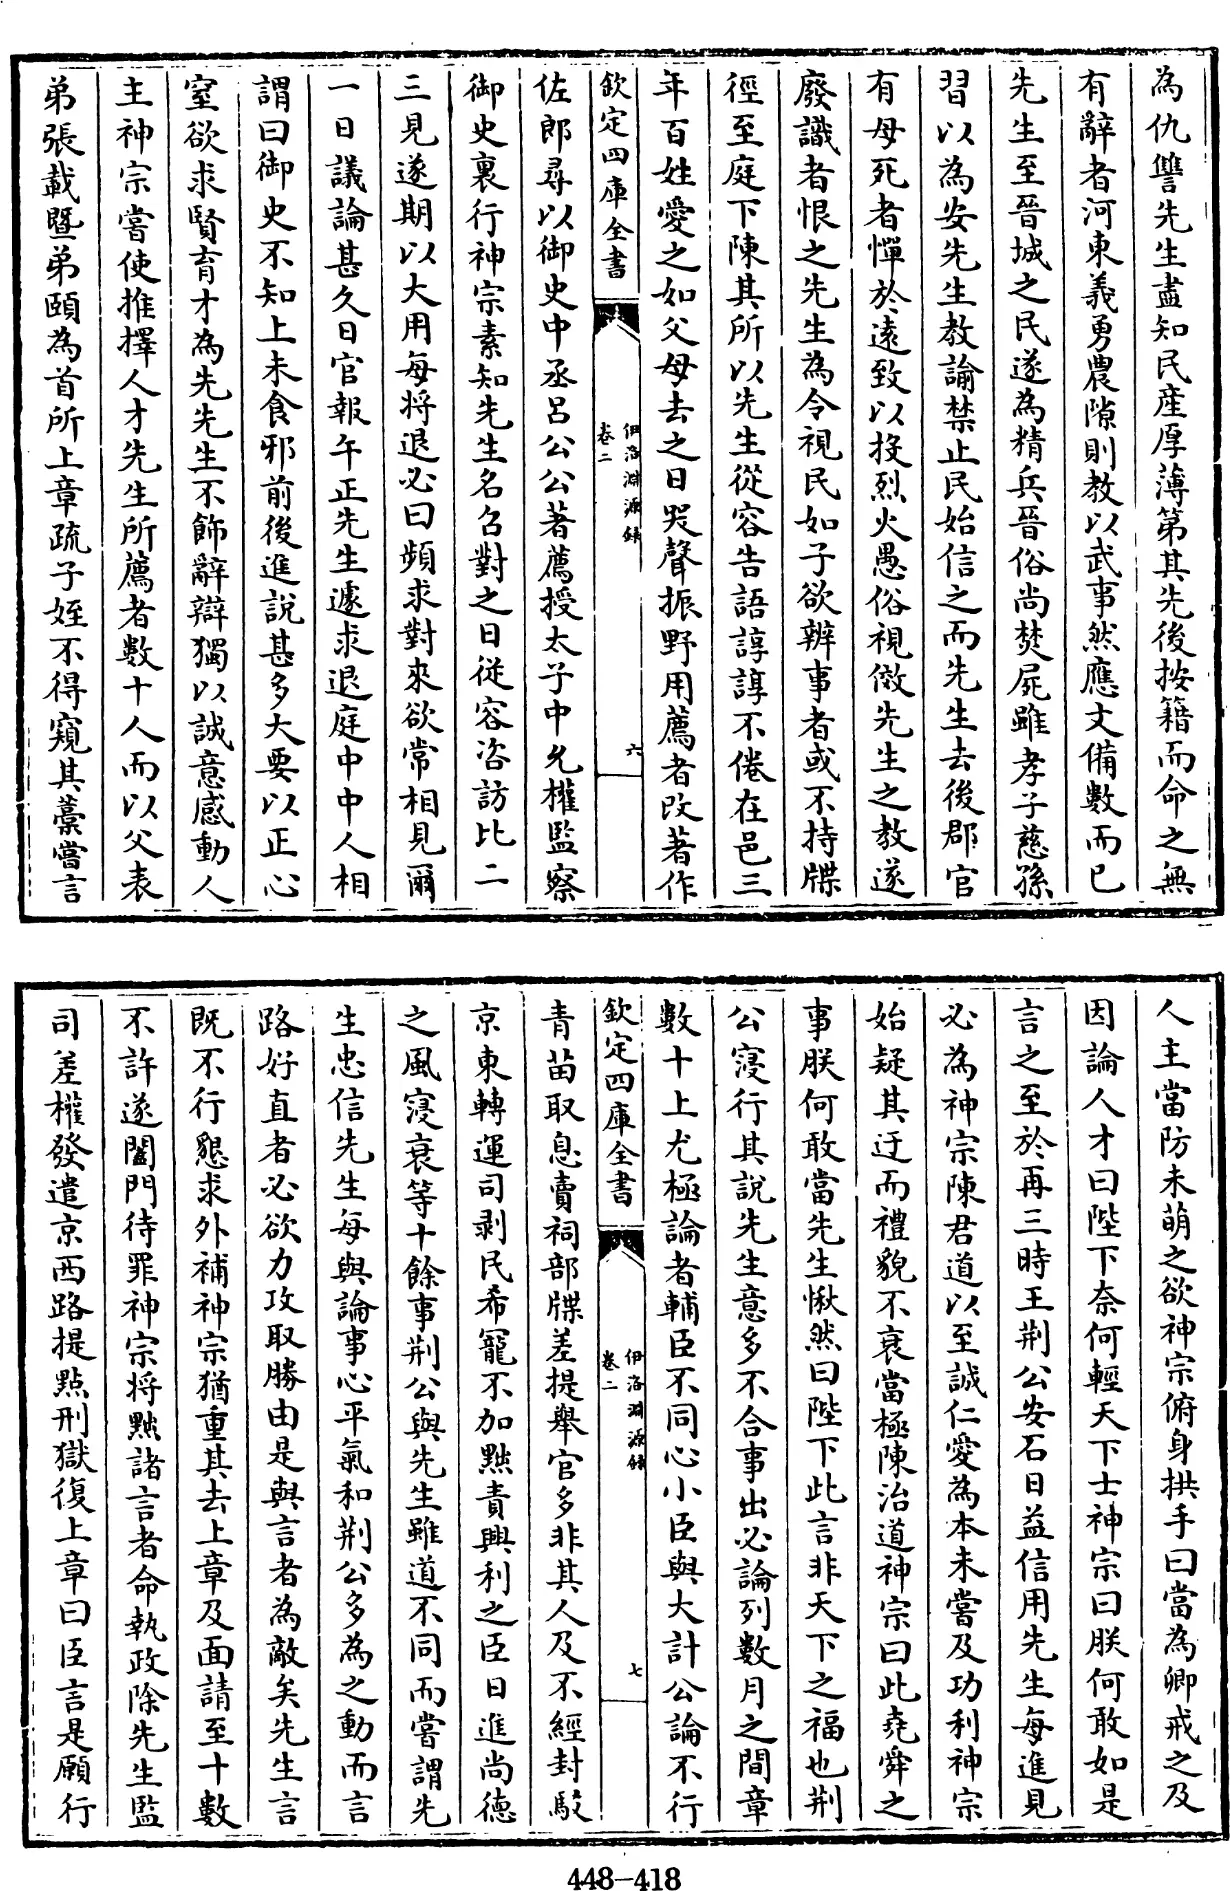 為仇讐先生盡知民産厚薄第其先後按籍而命之無
有辭者河東義勇農隙則教以武事然應文備數而已
先生至晉城之民遂為精兵晉俗尚焚屍雖孝子慈孫
習以為安先生教諭禁止民始信之而先生去後郡官
有母死者憚於遠致以投烈火愚俗視傚先生之教遂
廢識者恨之先生為令視民如子欲辨事者或不持牒
徑至庭下陳其所以先生從容告語諄諄不倦在邑三
年百姓愛之如父母去之日哭聲振野用薦者改著作
欽定四庫全書
伊洛淵源錄
卷二
六
佐郎尋以御史中丞呂公公著薦授太子中允權監察
御史裏行神宗素知先生名召對之日從容咨訪比二
三見遂期以大用每將退必曰頻求對來欲常相見爾
一日議論甚久日官報午正先生遽求退庭中中人相
謂曰御史不知上未食邪前後進説甚多大要以正心
窒欲求賢育才為先先生不飾辭辯獨以誠意感動人
主神宗嘗使推擇人才先生所薦者數十人而以父表
弟張載暨弟頤為首所上章疏子姪不得窺其藁嘗言
人主當防未萌之欲神宗俯身拱手曰當為卿戒之及
因論人才曰陛下奈何輕天下士神宗曰朕何敢如是
言之至於再三時王荆公安石日益信用先生每進見
必為神宗陳君道以至誠仁愛為本未嘗及功利神宗
始疑其迂而禮貌不衰當極陳治道神宗曰此堯舜之
事朕何敢當先生愀然曰陛下此言非天下之福也荆
公寖行其説先生意多不合事出必論列數月之間章
數十上尤極論者輔臣不同心小臣與大計公論不行
欽定四庫全書
伊洛淵源錄
卷二
七
青苗取息賣祠部牒差提舉官多非其人及不經封駮
京東轉運司剥民希寵不加黜責興利之臣日進尚德
之風寖衰等十餘事荆公與先生雖道不同而嘗謂先
生忠信先生每與論事心平氣和荆公多為之動而言
路好直者必欲力攻取勝由是與言者為敵矣先生言
既不行懇求外補神宗猶重其去上章及面請至十數
不許遂闔門待罪神宗將黜諸言者命執政除先生監
司差權發遣京西路提點刑獄復上章曰臣言是願行
448-418